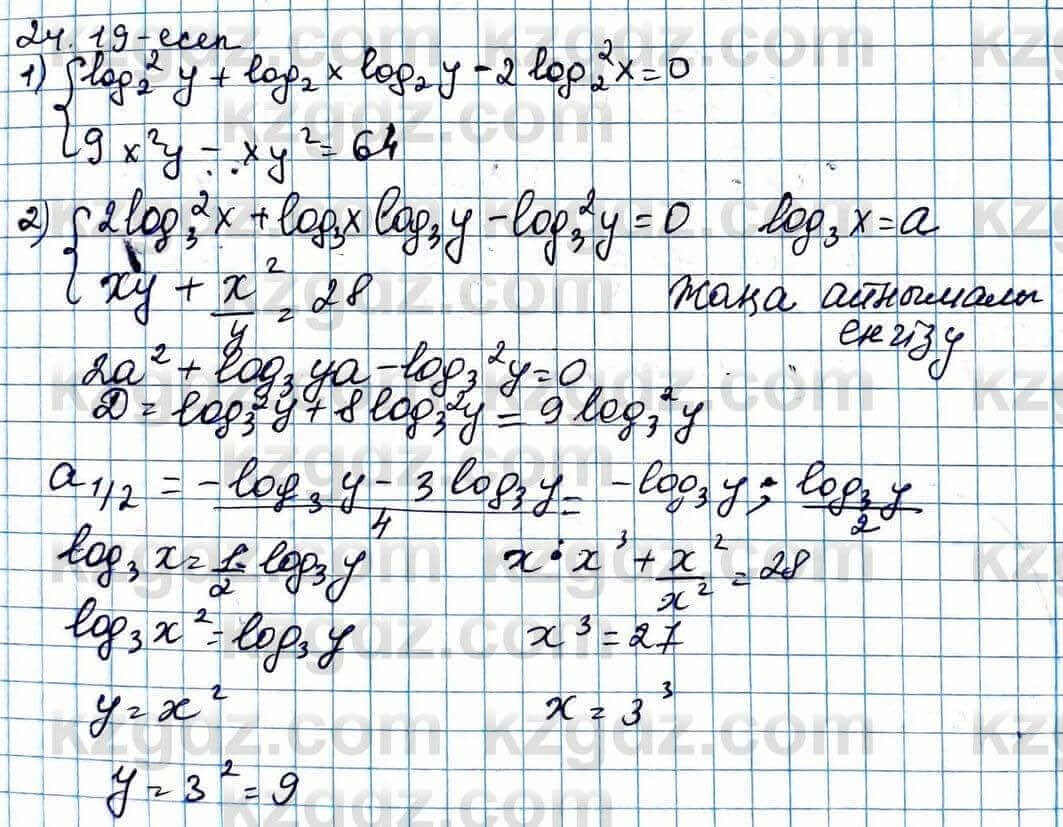 24.19-есеп
1) { log₂²y + log₂x log₂y - 2log₂²x = 0
9x²y - xy² = 64
2) { 2log₃²x + log₃x log₃y - log₃²y = 0 log₃x = a
xy + x²/y = 28 Жаңа айнымалы
енгізу
2a² + log₃ya - log₃²y = 0
D = log₃²y + 8log₃²y = 9log₃²y
a₁/₂ = (-log₃y - 3log₃y)/4 = -log₃y; log₃y/2
log₃x = 1/2 · log₃y x · x³ + x²/x² = 28
log₃x² = log₃y x³ = 27
y = x² x = 3³
y = 3² = 9